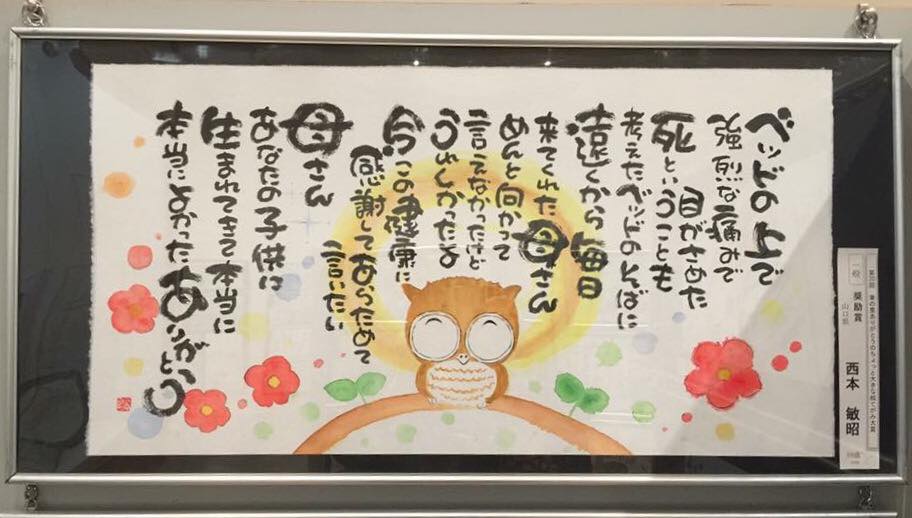 ベッドの上で
強烈な痛みで
目がさめた
死ということも
考えたベッドのそばに
遠くから毎日
来てくれた母さん
めんと向かって
言えなかったけど
うれしかったよ
今この健康に
感謝してあらためて
言いたい
母さん
あなたの子供に
生まれてきて本当に
本当によかったありがとう
筆の里ありがとうのちょっと大きな絵てがみ大賞
一般 奨励賞
山口県
西本 敏昭